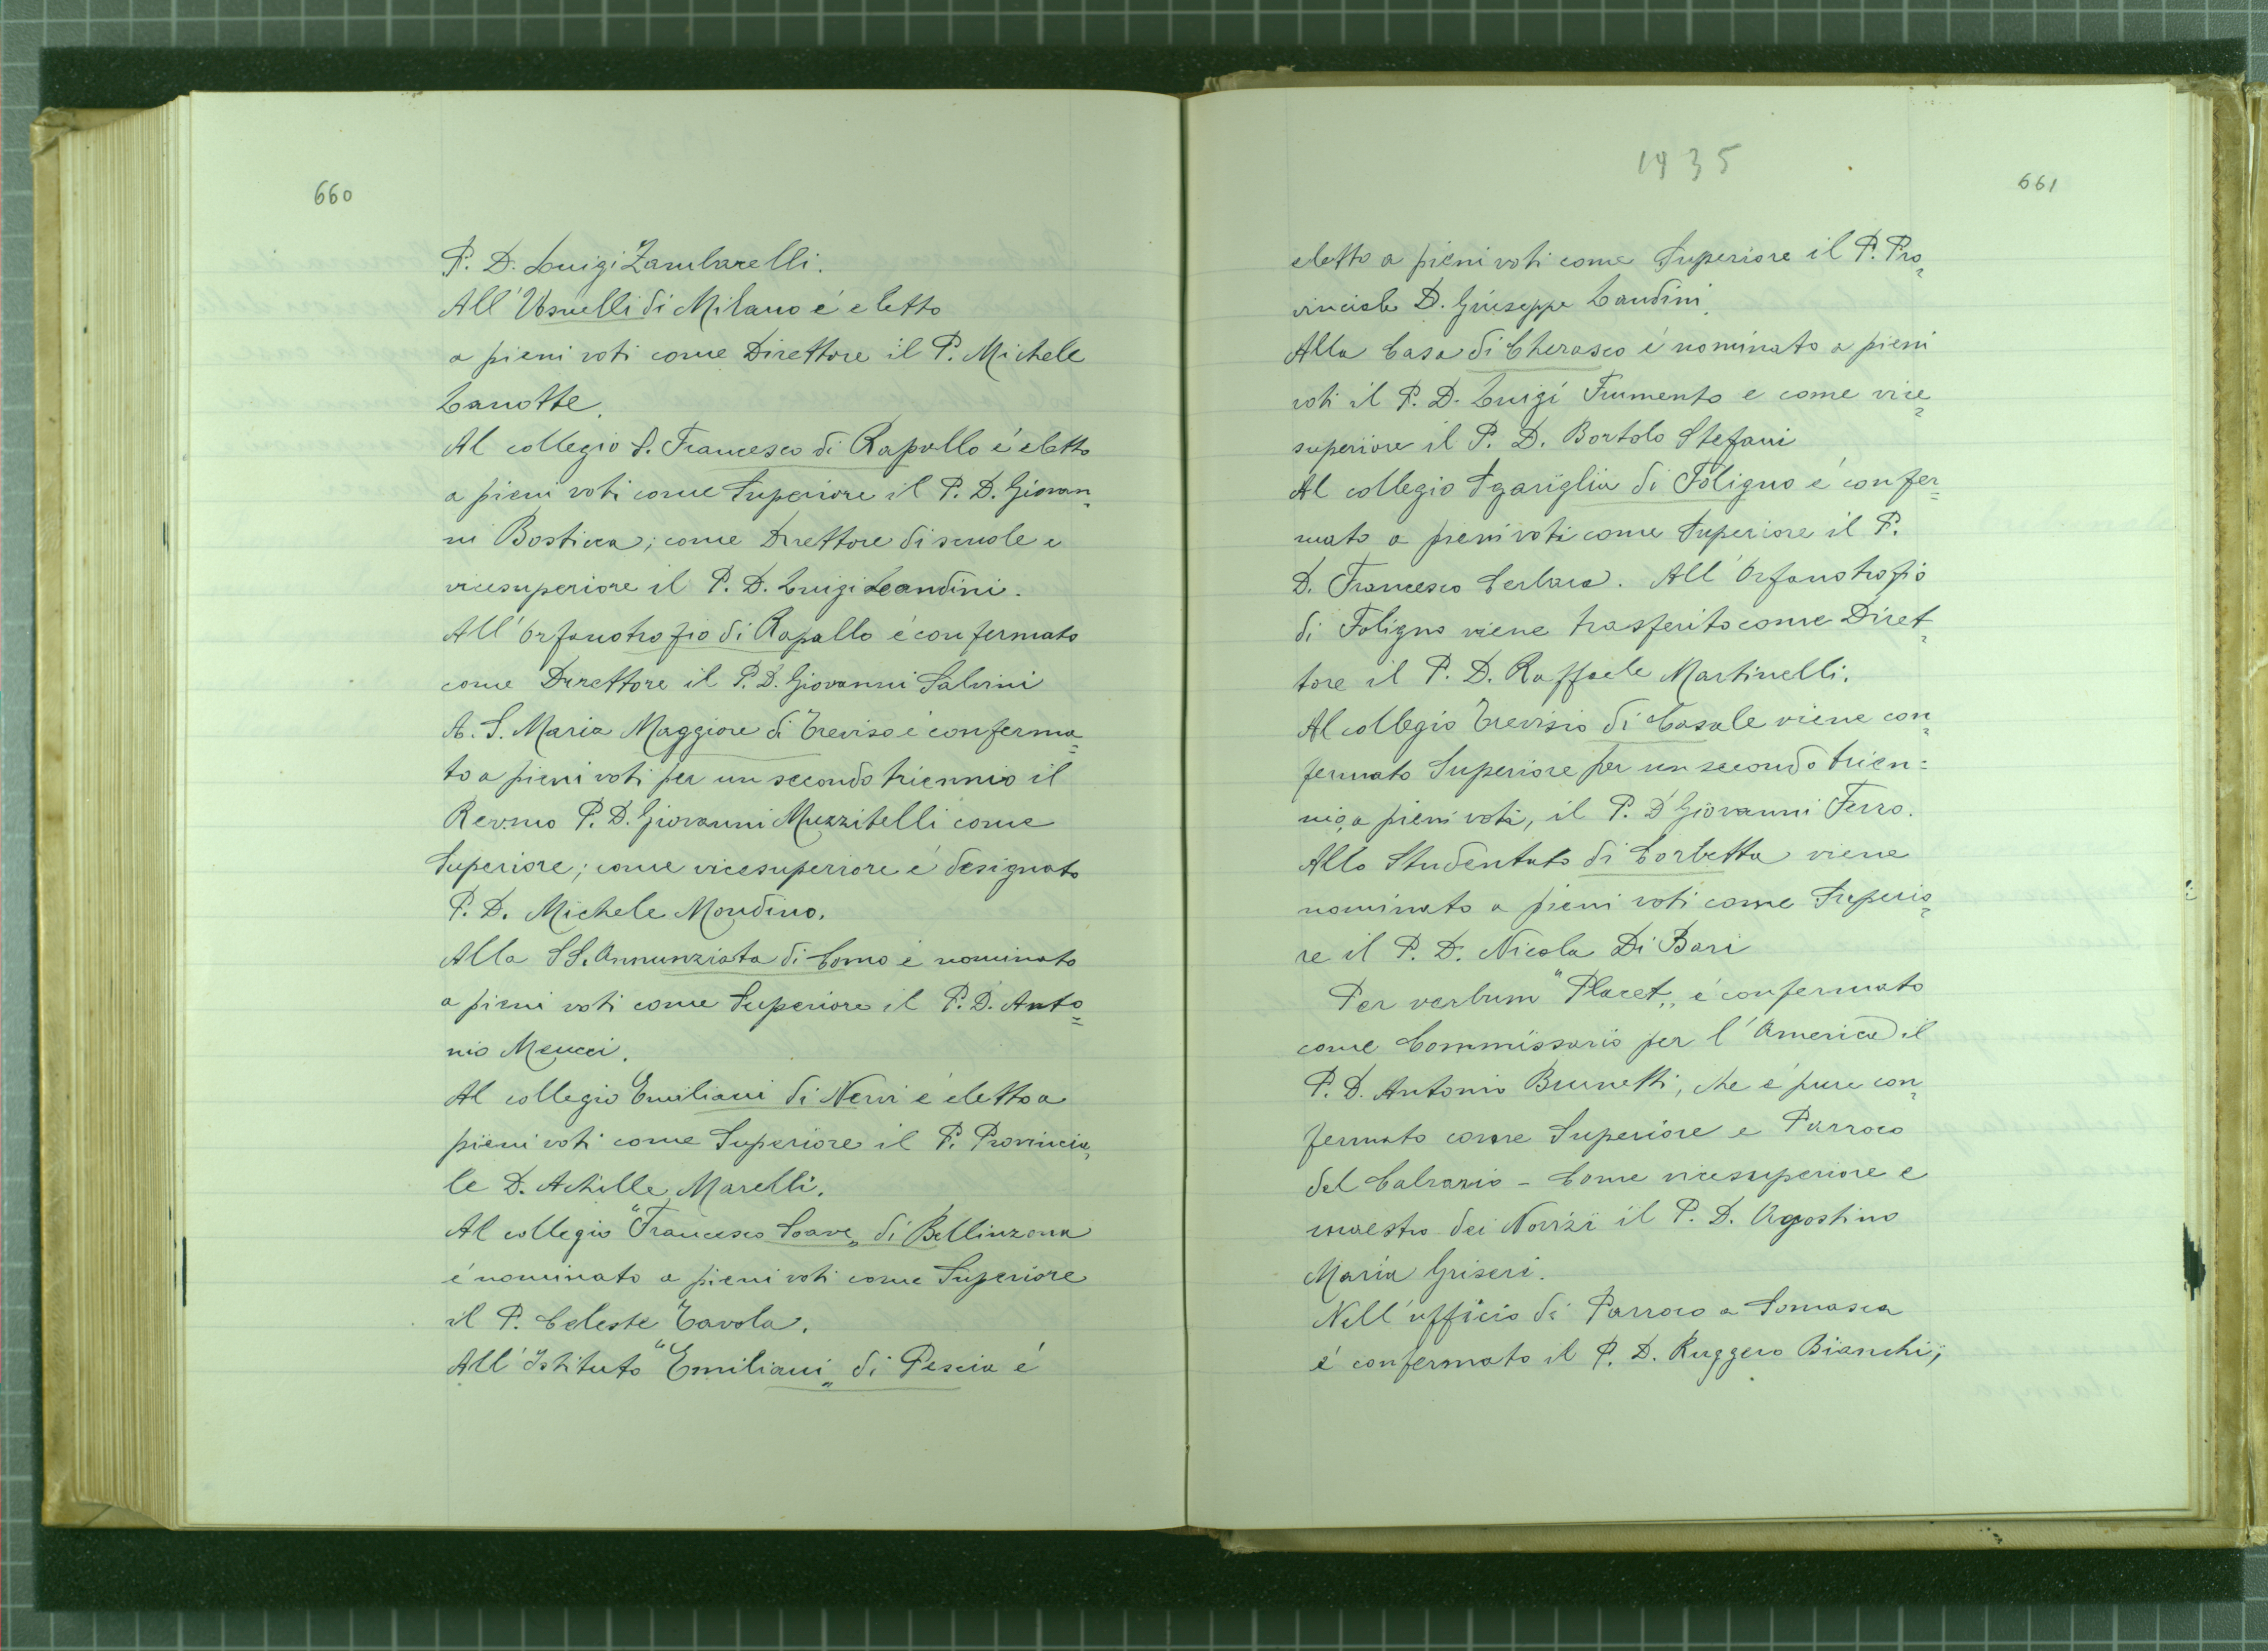 660
P. D. Luigi Zambarelli.
All' Usuelli di Milano é eletto
a pieni voti come Direttore il P. Michele
Canotte.
Al collegio S. Francesco di Rapallo é eletto
a pieni voti come Superiore il P. D. Giovan=
ni Bosticca; come Direttore di scuole e
vicesuperiore il P. D. Luigi Landini.
All' Orfanotrofio di Rapallo é confermato
come Direttore il P. D. Giovanni Salvini
A. S. Maria Maggiore di Treviso é conferma=
to a pieni voti per un secondo triennio il
Rev.mo P. D. Giovanni Muzzitelli come
Superiore; come vicesuperiore é designato
P. D. Michele Mondino.
Alla SS. Annunziata di Como é nominato
a pieni voti come Superiore il P. D. Anto=
nio Meucci.
Al collegio Emiliani di Nervi é eletto a
pieni voti come Superiore il P. Provincia=
le D. Achille Marelli.
Al collegio "Francesco Soave„ di Bellinzona
é nominato a pieni voti come Superiore
il P. Celeste Tavola.
All' Istituto "Emiliani„ di Pescia é
1935
661
eletto a pieni voti come Superiore il P. Pro=
vinciale D. Giuseppe Landini.
Alla Casa di Cherasco é nominato a pieni
voti il P. D. Luigi Frumento e come vice=
superiore il P. D. Bortolo Stefani
Al collegio Sgariglia di Foligno é confer=
mato a pieni voti come Superiore il P.
D. Francesco Cerbara. All' Orfanotrofio
di Foligno viene trasferito come Diret=
tore il P. D. Raffaele Martinelli.
Al collegio Trevisio di Casale viene con=
fermato Superiore per un secondo trien=
nio, a pieni voti, il P. D. Giovanni Ferro.
Allo Studentato di Corbetta viene
nominato a pieni voti come Superio=
re il P. D. Nicola Di Bari
Per verbum "Placet„ é confermato
come Commissario per l'America il
P. D. Antonio Brunetti, che é pure con=
fermato come Superiore e Parroco
del Calvario - Come vicesuperiore e
maestro dei Novizi il P. D. Agostino
Maria Griseri.
Nell'ufficio di Parroco a Somasca
é confermato il P. D. Ruggero Bianchi;